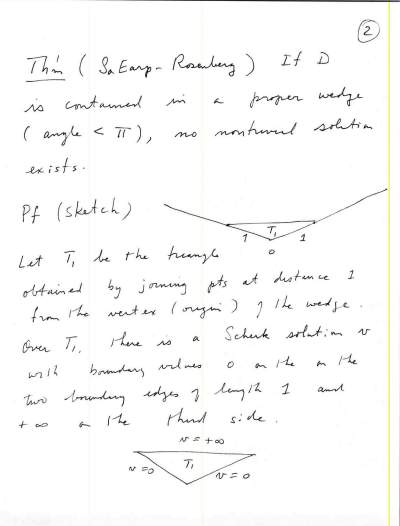 2
Thm (SaEarp-Rosenberg) If D
is contained in a proper wedge
(angle < π), no nontrivial solution
exists.
Pf (sketch)
T₁
1 1
0
Let T₁ be the triangle
obtained by joining pts at distance 1
from the vertex (origin) of the wedge.
Over T₁, there is a Scherk solution v
with boundary values 0 on the on the
two boundary edges of length 1 and
+∞ on the third side.
v = +∞
v=0 T₁ v=0